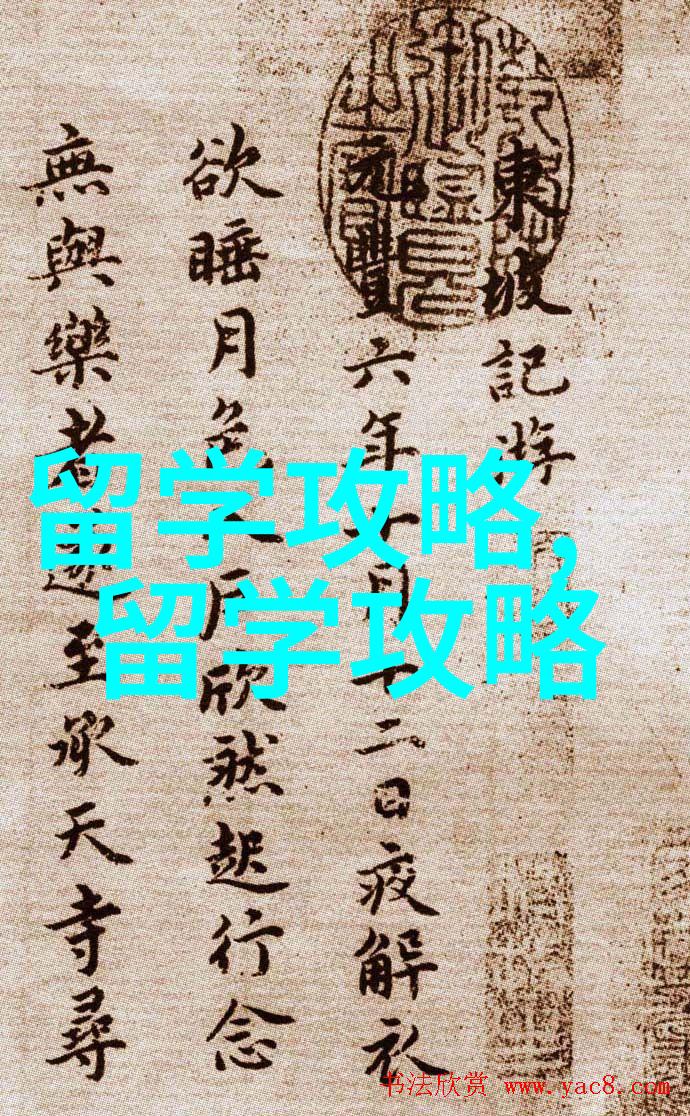 東坡記游
元豐六年十月十二日夜解衣
欲睡月色入户欣然起行念
無與樂者遂至承天寺尋
留学攻略,
留学攻略
书法欣赏 www.yac8.com